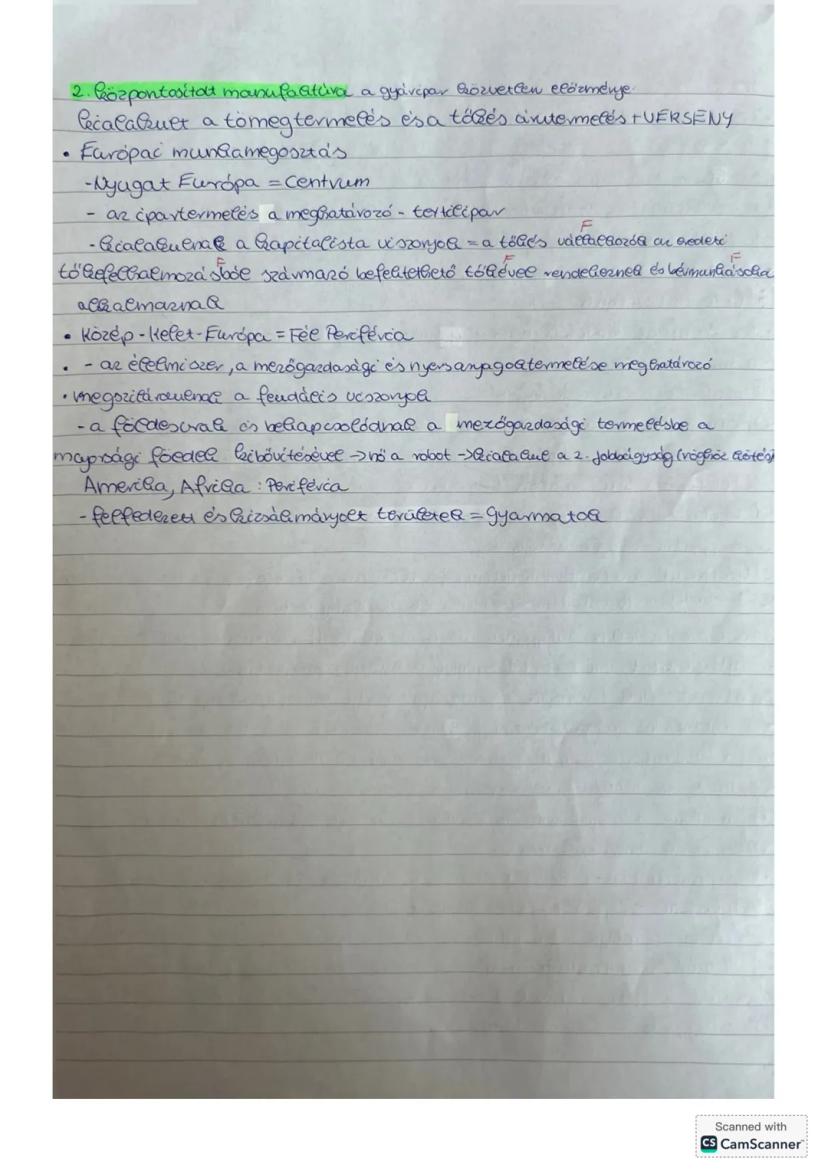 2. központosított manufaktúra a gyáripar közvetlen előzménye
kialakult a tömegtermelés és a tőkés árutermelés + VERSENY
• Európai munkamegosztás
-Nyugat Európa = Centrum
- az ipartermelés a meghatározó - textilipar
-kialakulnak a kapitalista viszonyok = a tőkés vállalkozók az eredeti
F
tőkefelhalmozásból származó befektethető tőkével rendelkeznek és bérmunkásokat
F F F
alkalmaznak
• Közép-Kelet-Európa = Fél Periféria
• - az élelmiszer, a mezőgazdasági és nyersanyagok termelése meghatározó
• megszilárdulnak a feudális viszonyok
- a földesurak is bekapcsolódnak a mezőgazdasági termelésbe a
majorsági földek kibővítésével → nő a robot → kialakul a 2. jobbágyság (röghöz kötés)
Amerika, Afrika : Periféria
- felfedezett és kizsákmányolt területek = gyarmatok
Scanned with
CS CamScanner